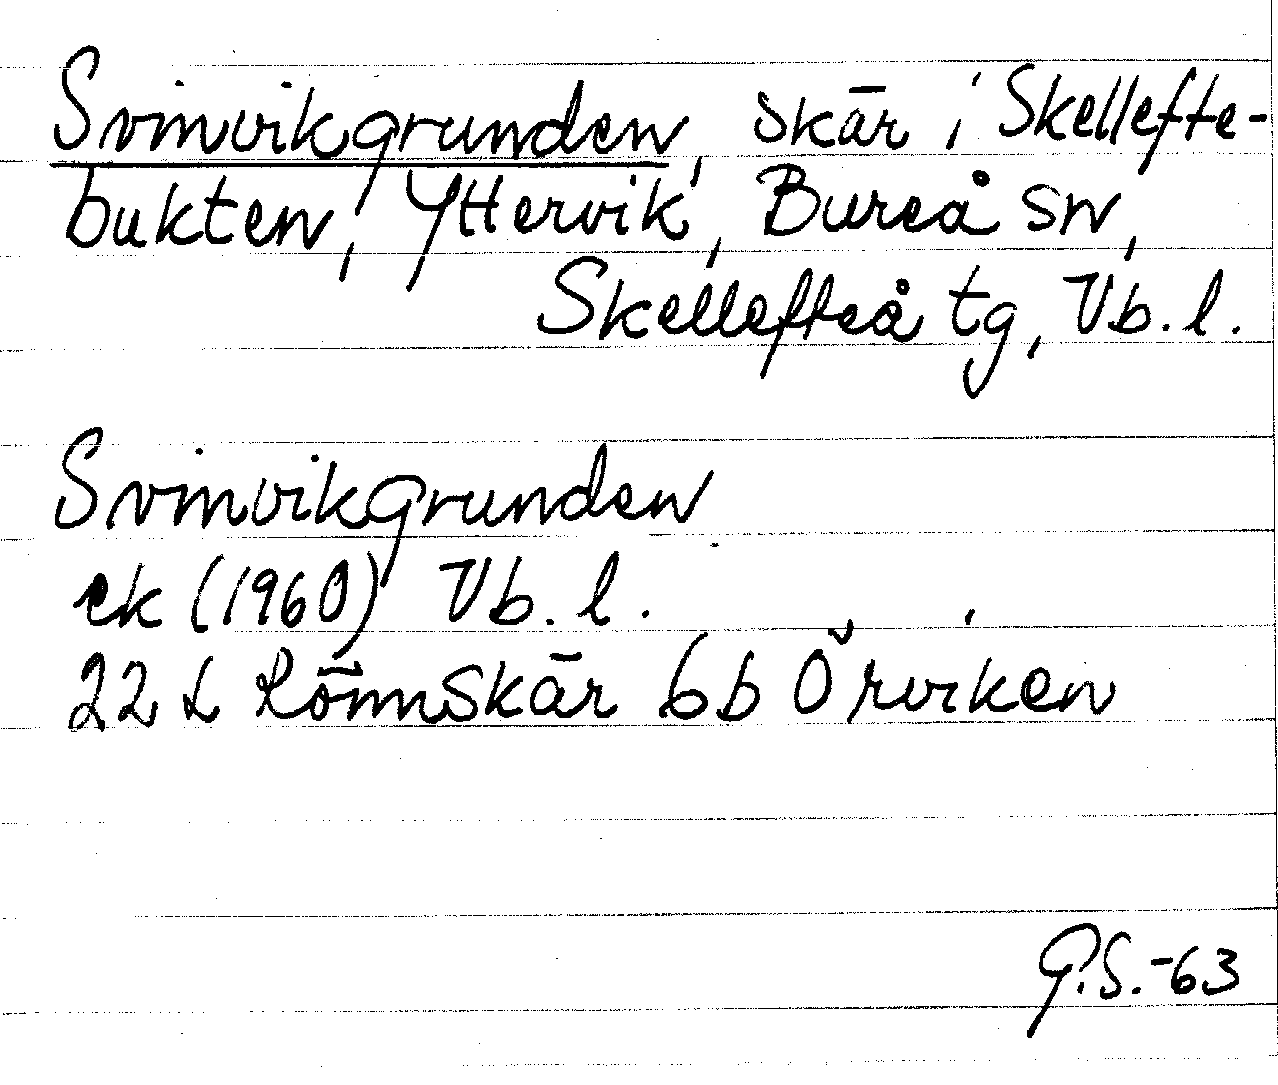 Svinvikgrunden, skär i Skellefte-
bukten, Yttervik, Bureå sn,
Skellefteå tg, Vb. l.
Svinvikgrunden
ek (1960) Vb. l.
22 L Rönnskär 6b Örviken
G.S.-63